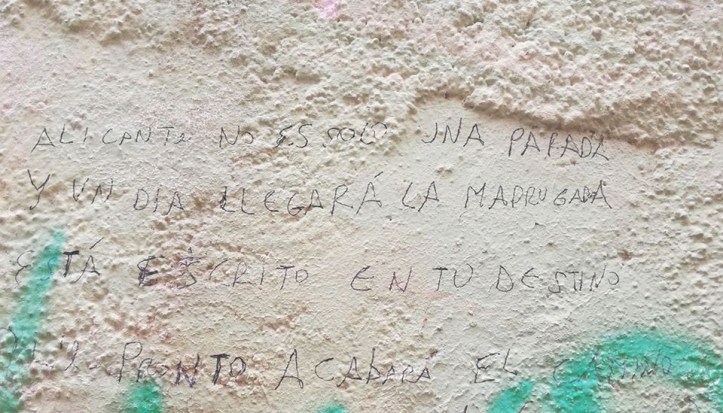 ALICANTE NO ES SOLO UNA PARADA
Y UN DIA LLEGARÁ LA MADRUGADA
ESTÁ ESCRITO EN TU DESTINO
PRONTO ACABARA EL CAMINO